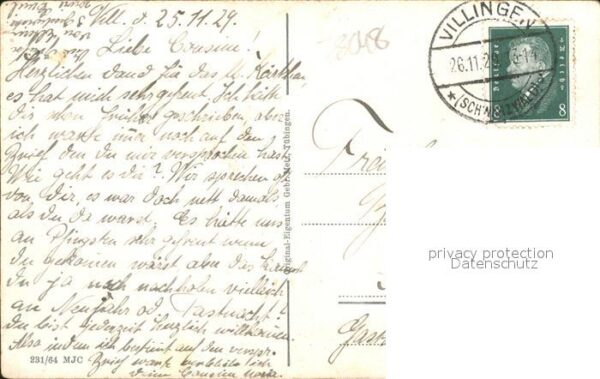 Vill. d. 25.11.29.
Liebe Cousine!
Herzlichen dank für das Kärtchen
es hat mich sehr gefreut. Ich hätte
dir schon früher geschrieben, aber
ich warte immer noch auf den
Brief den du mir versprochen hast.
Wie geht es dir? Wir sprechen oft
von Dir, es war doch nett damals
als du da warst. Es hätte uns
an Pfingsten sehr gefreut wenn
du gekommen wärst aber das kannst
du ja noch nachholen vielleich
an Neujahr od. Fastnacht!
du bist jederzeit herzlich willkommen.
Also indem ich bestimmt auf den verspr.
Brief warte verbleibe ich
deine Cousine
231/64 MJC
Original-Eigentum Gebr. Metz, Tübingen.
8048
VILLINGEN
26.11.29
(SCHWARZWALD)
Deutsches Reich
8
privacy protection
Datenschutz